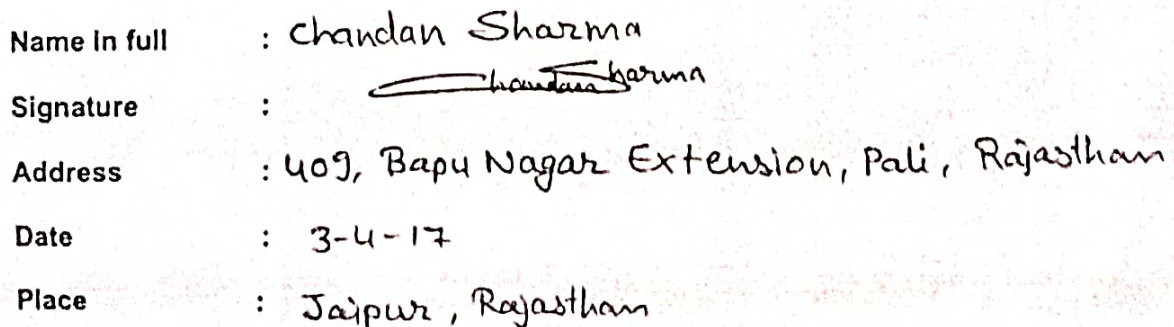 Name in full : Chandan Sharma
Signature : Chandan Sharma
Address : 409, Bapu Nagar Extension, Pali, Rajasthan
Date : 3-4-17
Place : Jaipur, Rajasthan